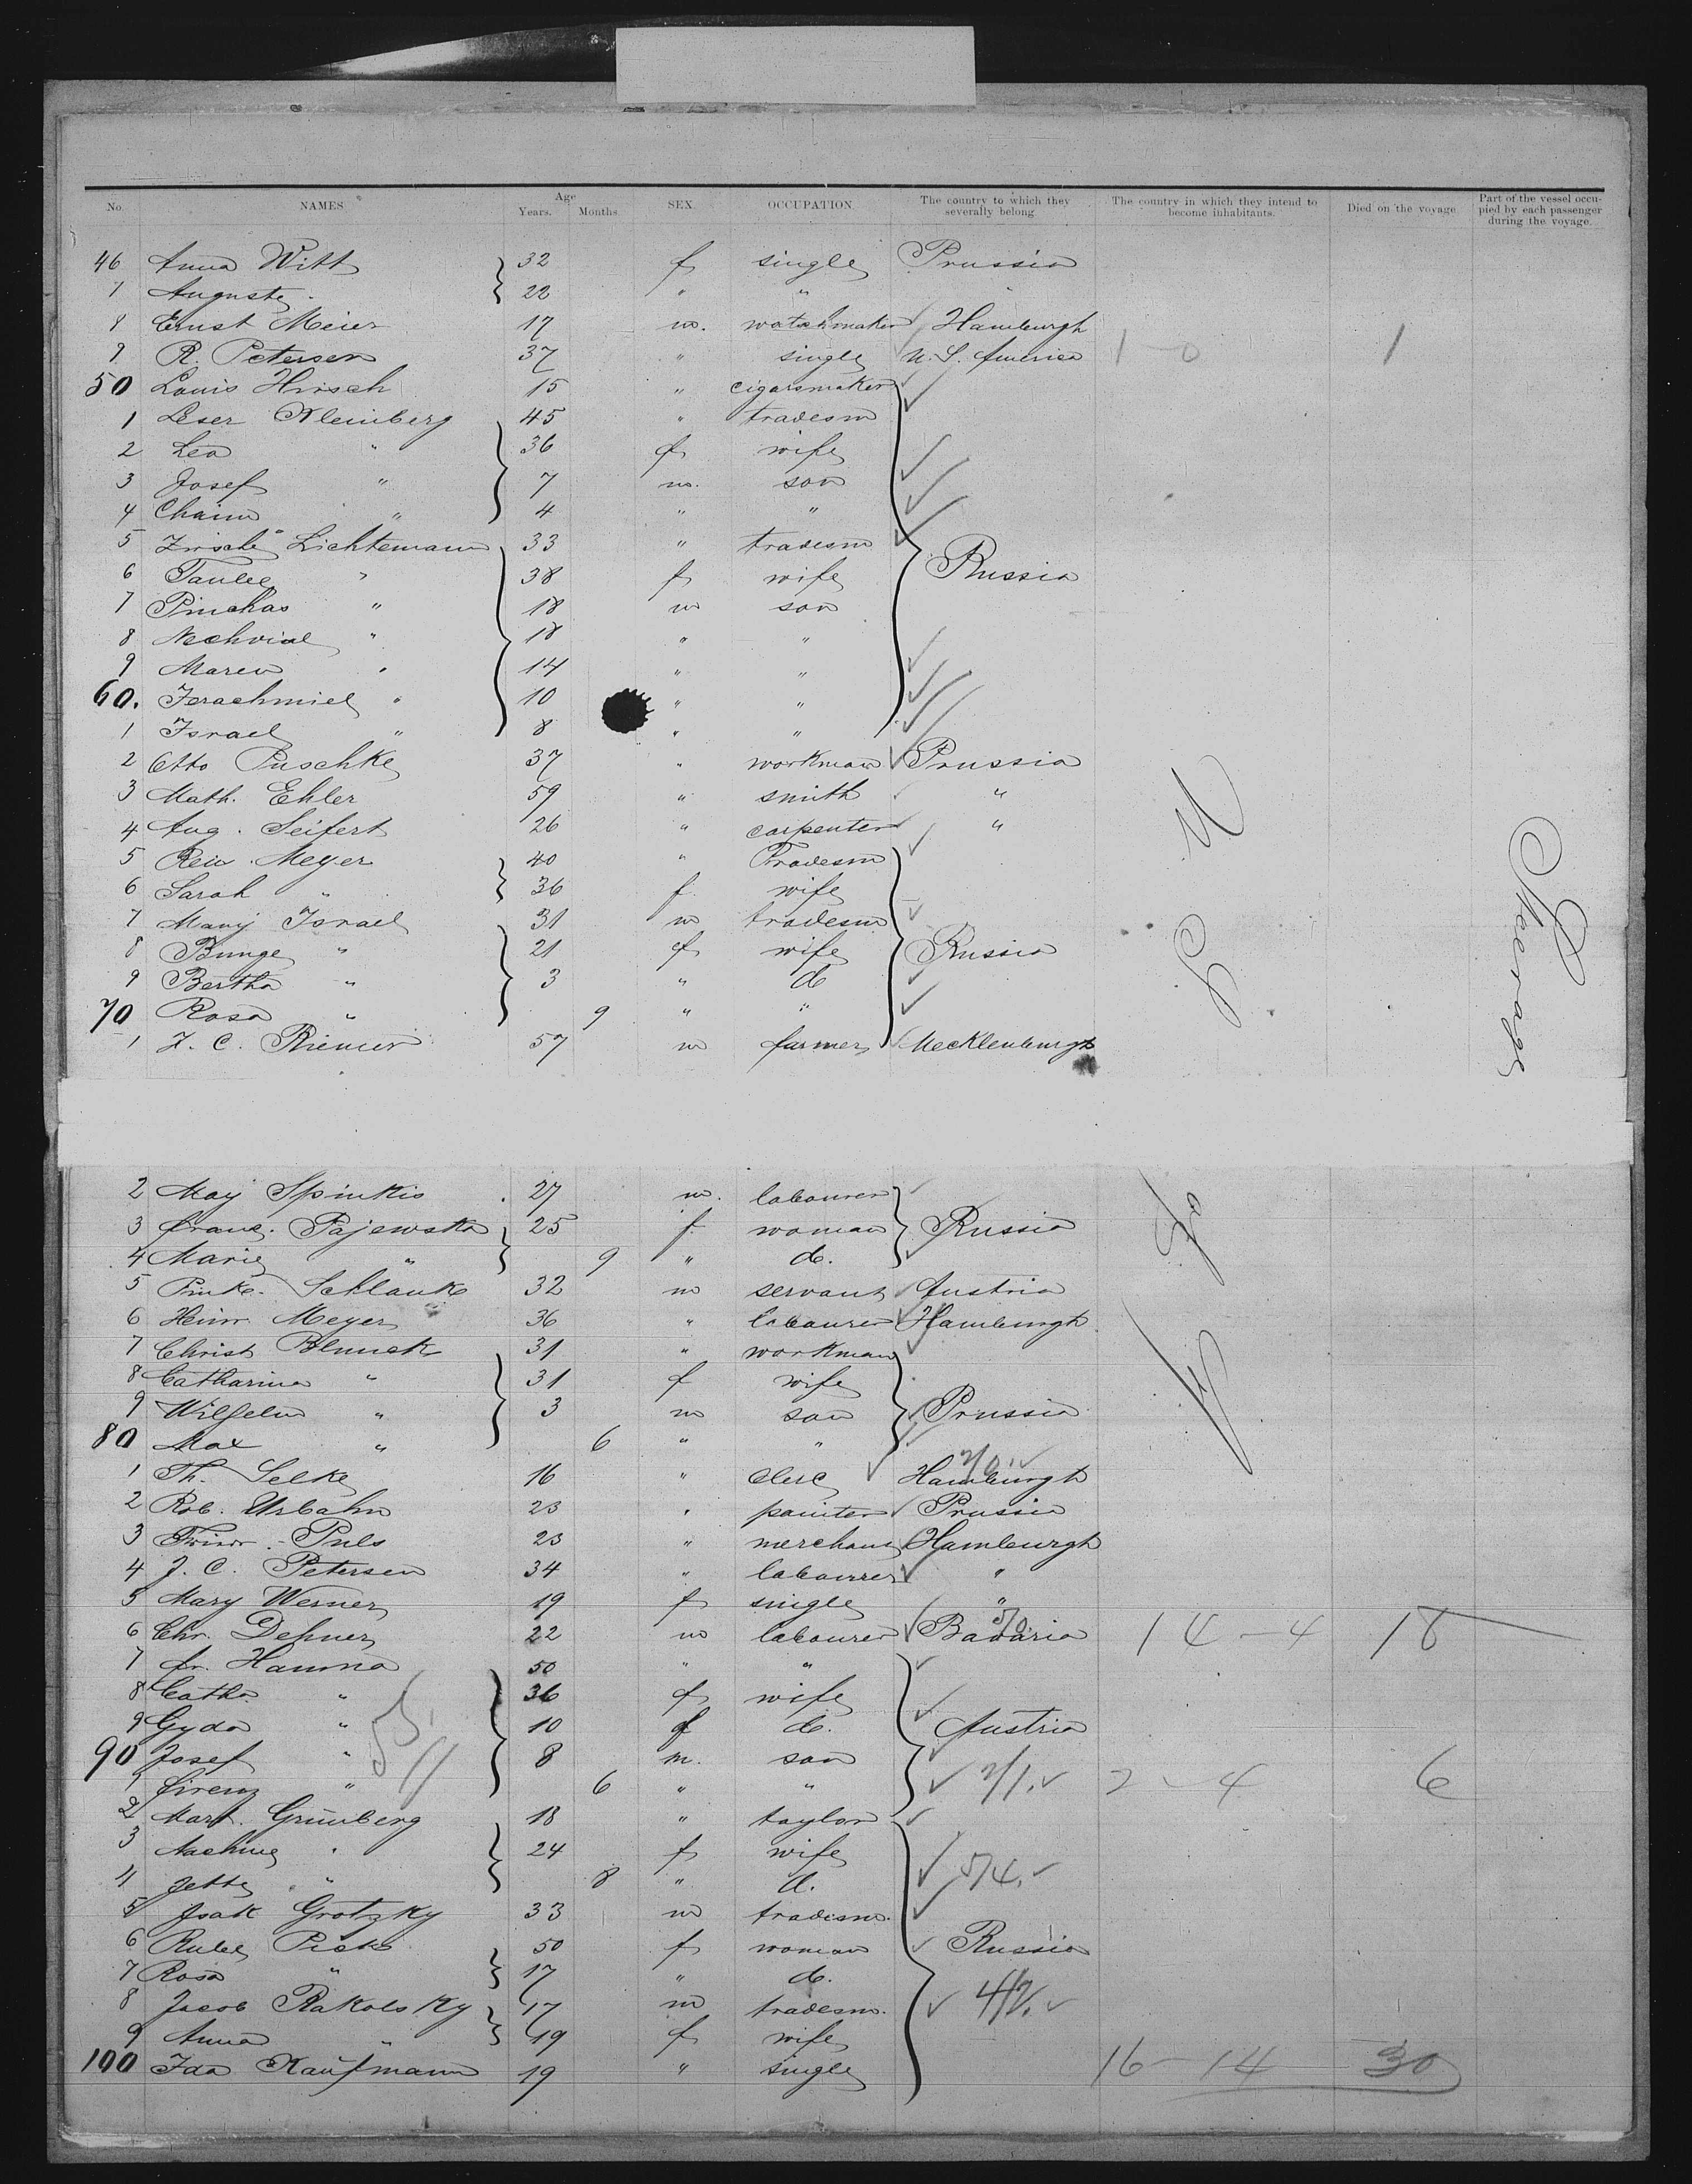 No. NAMES Age Years. Months. SEX. OCCUPATION. The country to which they severally belong. The country in which they intend to become inhabitants. Died on the voyage. Part of the vessel occupied by each passenger during the voyage.
46 Anna Witt 32 f single Prussia
7 Auguste " 22 " " "
8 Ernst Meier 17 m. watchmaker Hamburgh
9 R. Petersen 37 " single U. S. America 1 - 0 1
50 Louis Hirsch 15 " cigarsmaker
1 Leser Kleinberg 45 " tradesm
2 Lea " 36 f wife
3 Josef " 7 m. son
4 Chaim " 4 " "
5 Lichtemann 33 " tradesm
6 Taube " 38 f wife Russia
7 Pinchas " 18 m son
8 " 18 " "
9 " 14 " "
60. Jerachmiel " 10 " "
1 Israel " 8 " "
2 Otto Puschke 37 " workman Prussia
3 Math. Ehler 59 " smith "
4 Aug. Seifert 26 " carpenter "
5 Meyer 40 " Tradesm
6 Sarah " 36 f. wife
7 Israel 31 m tradesm
8 Bunge " 21 f wife Russia
9 Bertha " 3 " d
70 Rosa " 9 " "
1 J. C. Riemer 57 m farmer Mecklenburgh
U S of A
Steerage
2 Spinkis 27 m. labourer
3 Franz. Pajewska 25 f woman Russia
4 Marie " 9 " d.
5 Schlank 32 m servant Austria
6 Heinr. Meyer 36 " labourer Hamburgh
7 Christ 31 " workman
8 Catharina " 31 f wife
9 Wilhelm " 3 m son Prussia
80 Max " 6 " "
1 Th. Selke 16 " clerc Hamburgh
2 Rob. Urbahn 23 " painter Prussia
3 Puls 23 " merchant Hamburgh
4 J. C. Petersen 34 " labourer "
5 Mary Werner 19 f single "
6 Chr. Dehner 22 m labourer Bavaria 14 - 4 18
7 Fr. Hanna 50 " "
8 Catha " 36 f wife
9 Gyda " 10 f d. Austria
90 Josef " 8 m. son
1 " 6 " " 2/1. 2 - 4 6
2 Mart. Grünberg 18 " taylor
3 " 24 f wife
4 Jette " 8 " d. 5/4.
5 Isak Grotzky 33 m tradesm.
6 50 f woman Russia
7 Rosa " 17 " d.
8 Jacob Rakolsky 17 m tradesm. 4/2.
9 Anna " 19 f wife
100 Ida Kaufmann 19 " single 16 - 14 30